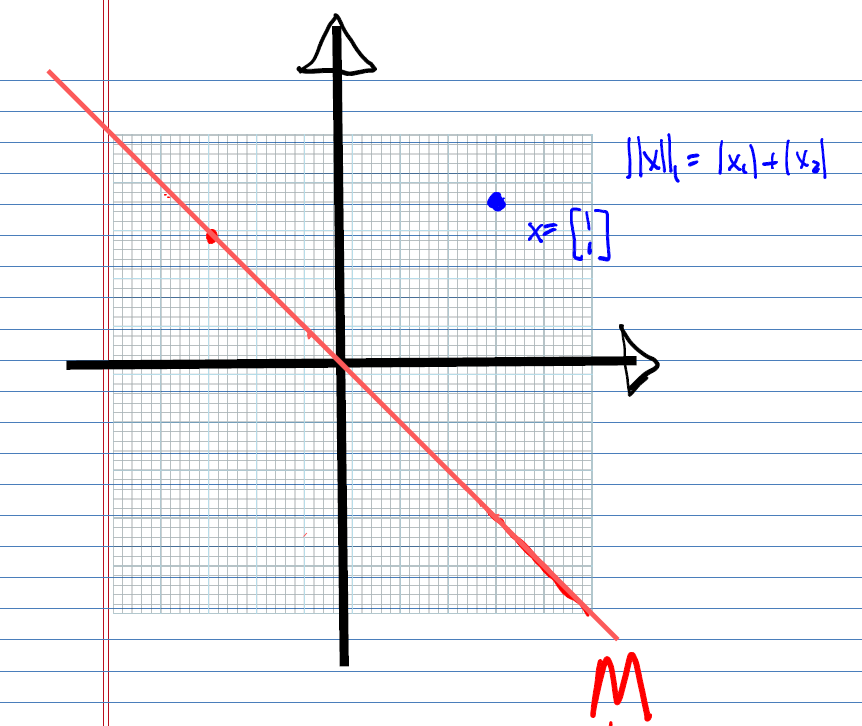 ||x||₁ = |x₁| + |x₂|
x = [1 1]
M